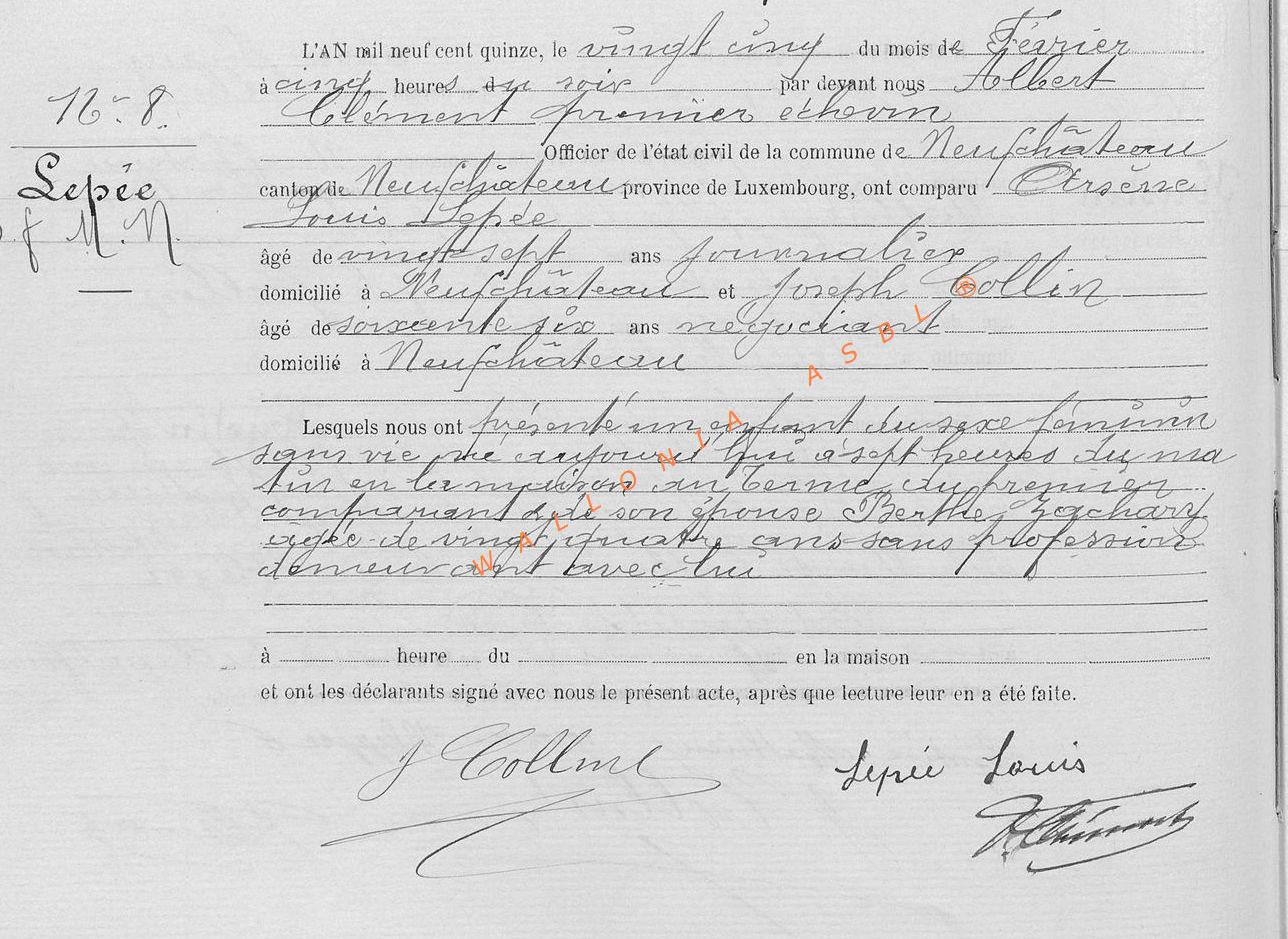 L'AN mil neuf cent quinze, le vingt cinq du mois de Février
à cinq heures du soir par devant nous Albert
Clément premier échevin
Officier de l'état civil de la commune de Neufchâteau
canton de Neufchâteau province de Luxembourg, ont comparu Arsène
Louis Lepée
âgé de vingt sept ans journalier
domicilié à Neufchâteau et Joseph Collin
âgé de soixante six ans négociant
domicilié à Neufchâteau
Lesquels nous ont présenté un enfant du sexe féminin
sans vie né aujourd'hui à sept heures du ma
tin en la maison au Terme, du premier
comparant & de son épouse Berthe Zachary
âgée de vingt quatre ans sans profession
demeurant avec lui
à heure du en la maison
et ont les déclarants signé avec nous le présent acte, après que lecture leur en a été faite.
N° 8.
Lepée
f M. N.
J Collin
Lepée Louis
A Clément
WALLONIA ASBL ®